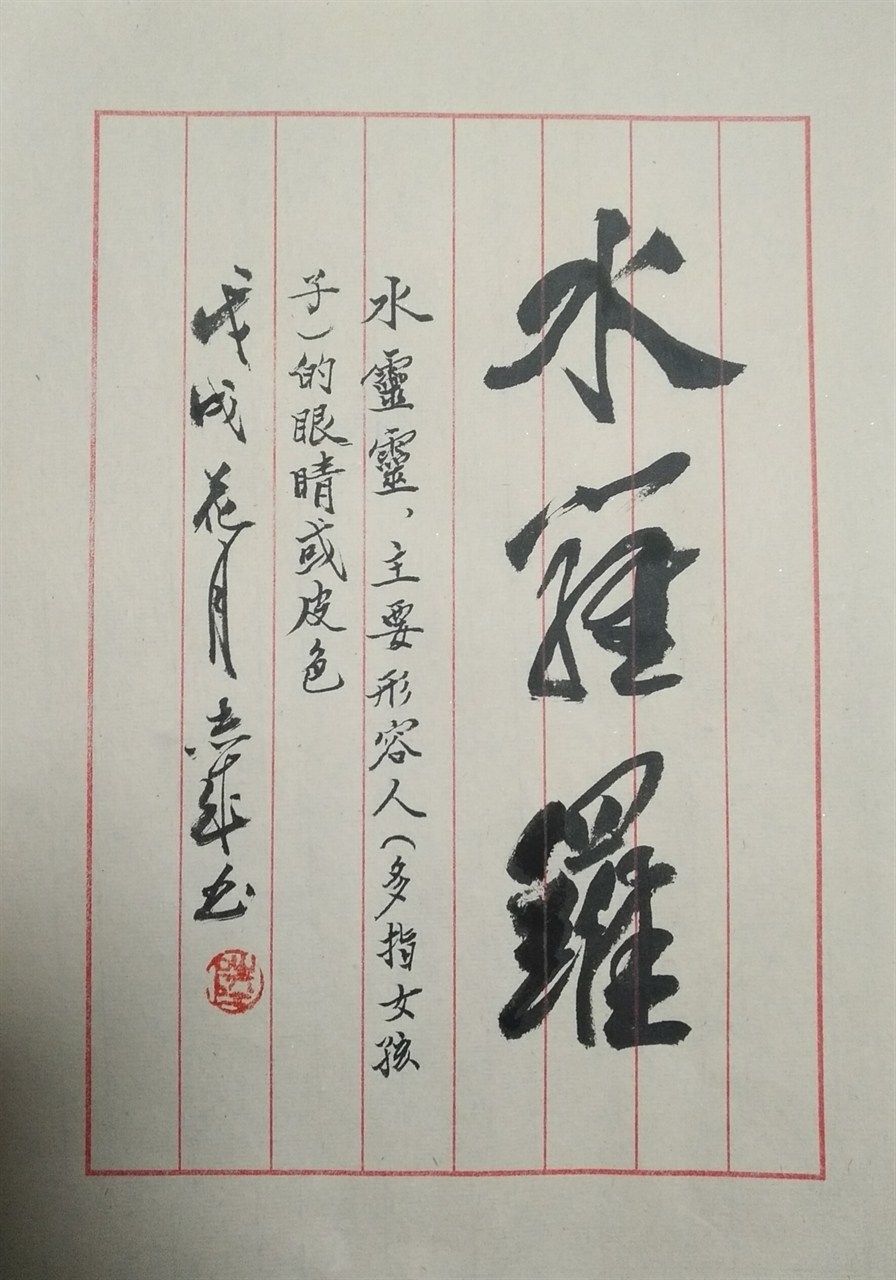 水羅羅
水靈靈，主要形容人（多指女孩
子）的眼睛或皮色
戊戌花月志華书